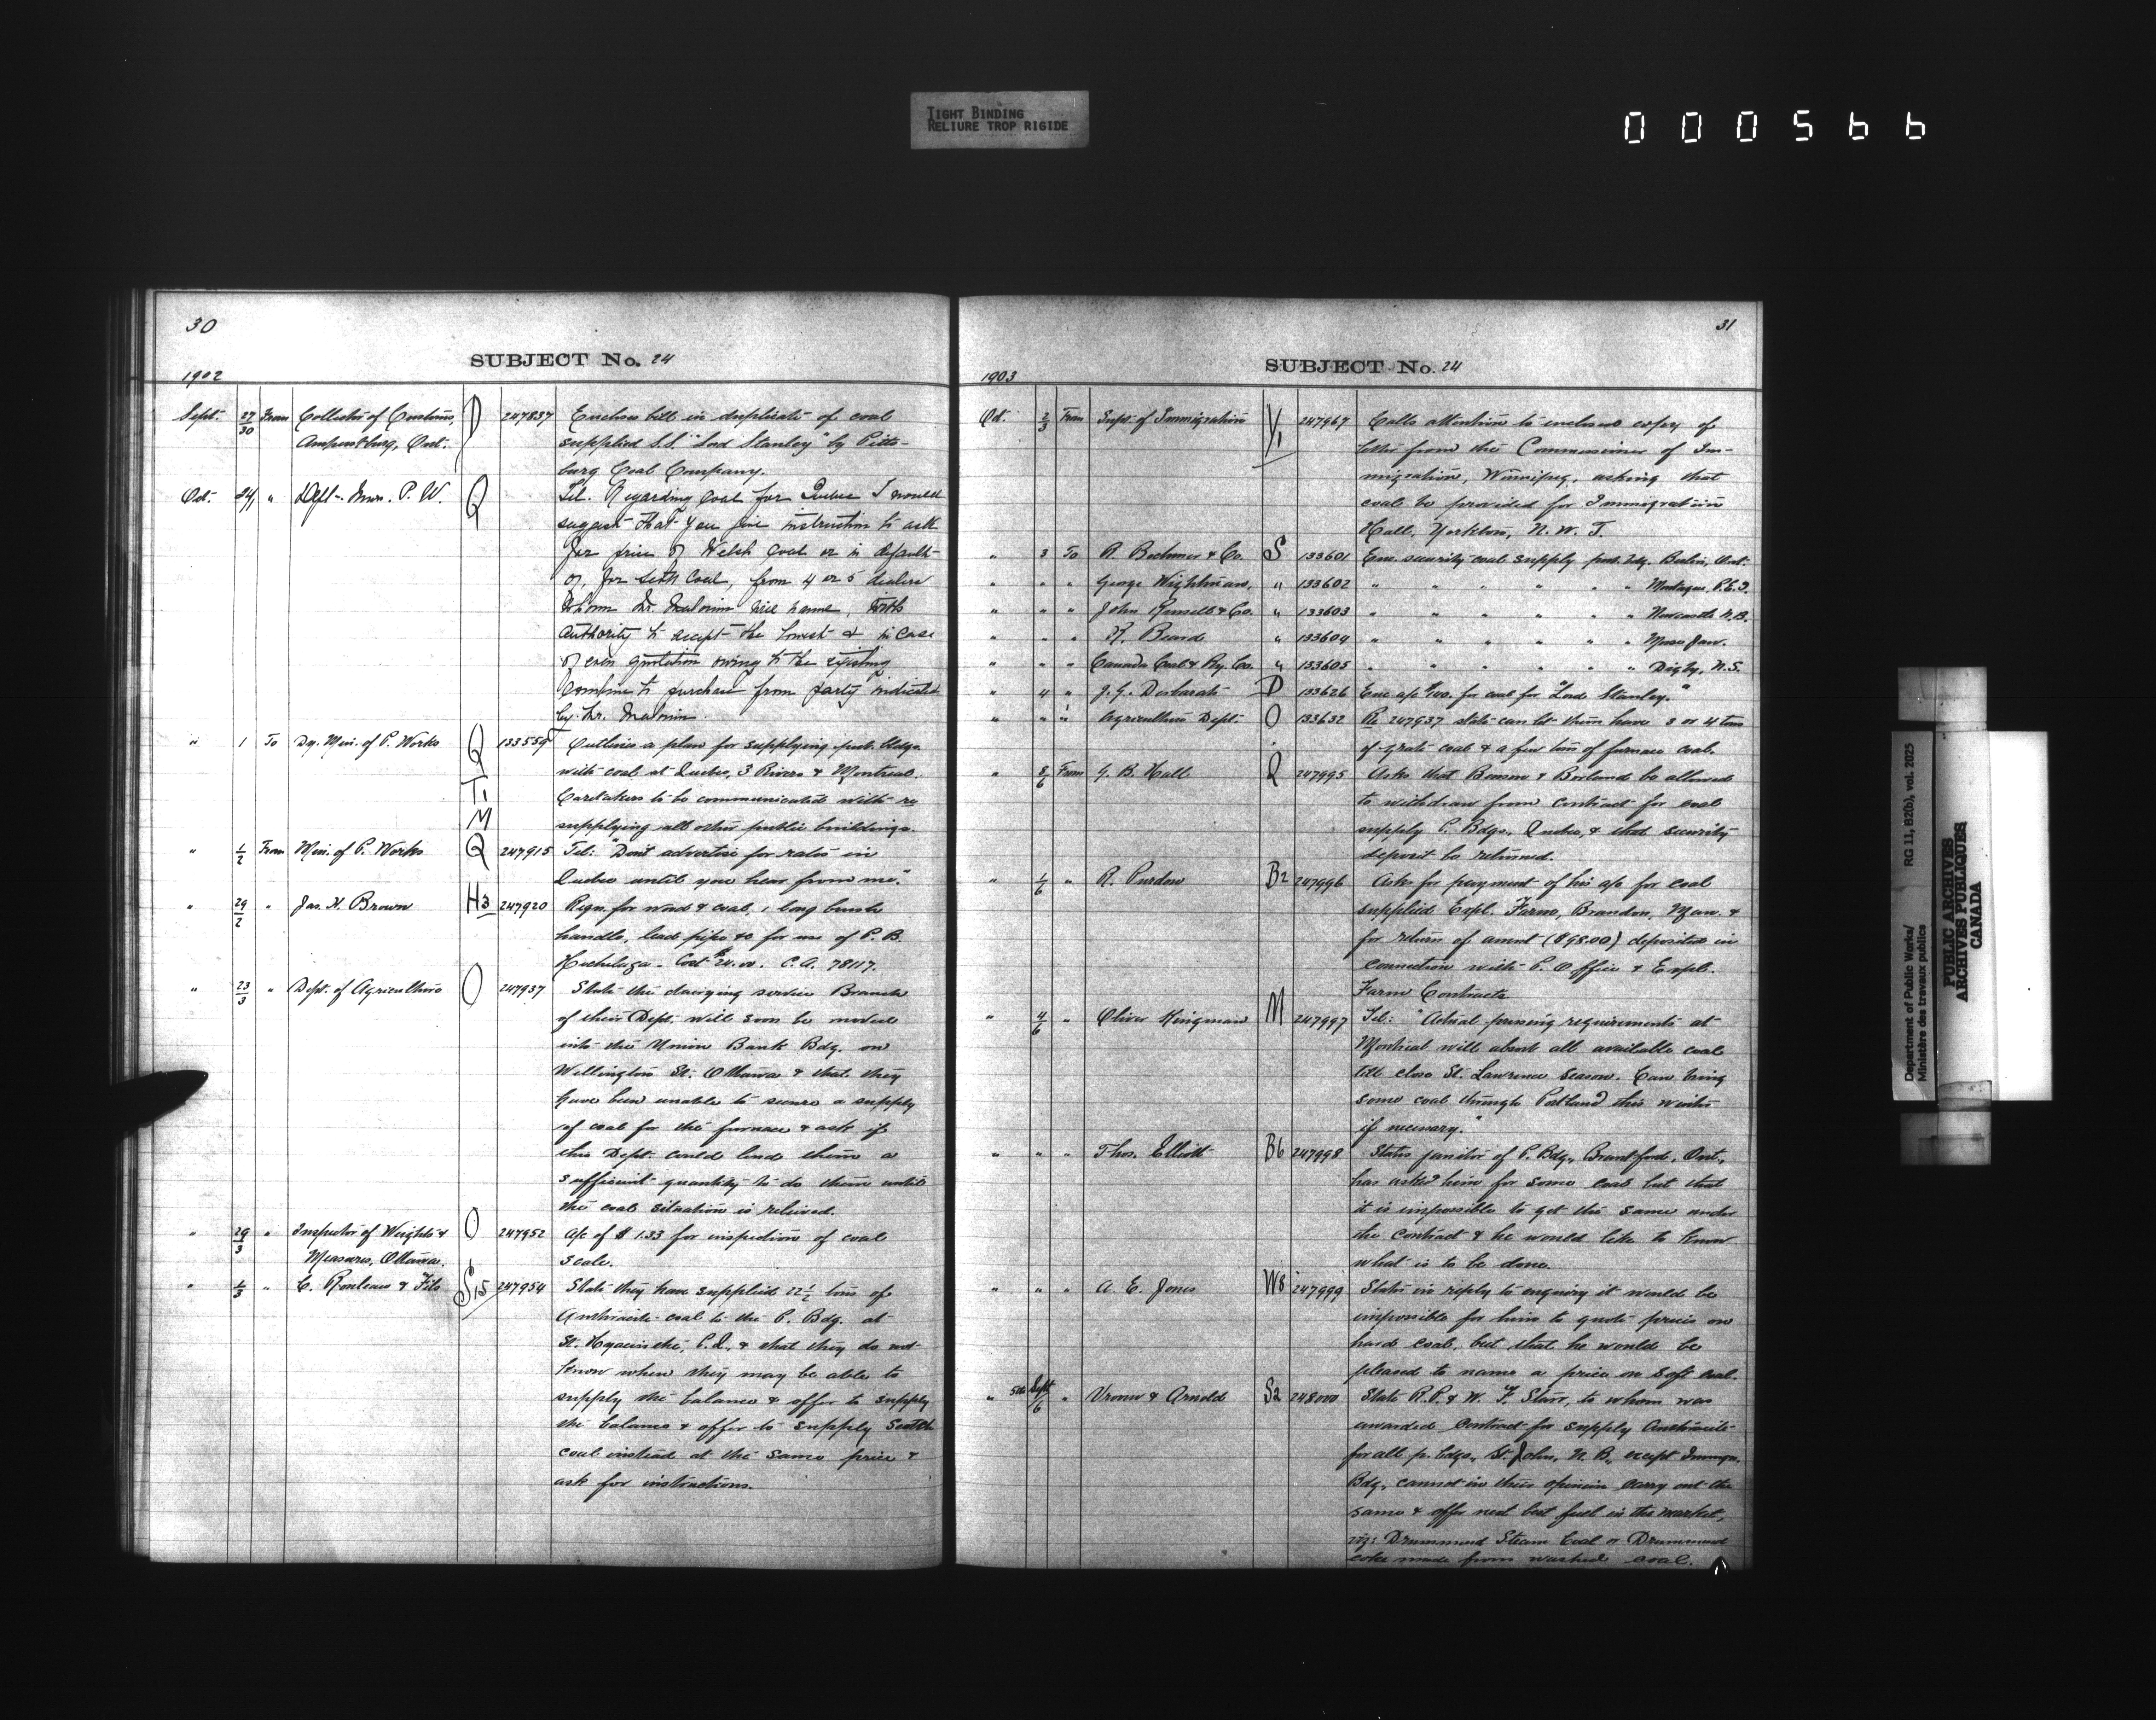 TIGHT BINDING
RELIURE TROP RIGIDE
000566
30
SUBJECT No. 24
1902
Sept. 27/30 From Collector of Customs, D 247837 Encloses bill in duplicate of coal
Amherstburg, Ont. supplied S.S. "Lord Stanley" by Pitts-
burg Coal Company.
Oct. " P. W. Q Tel. Regarding Coal for Quebec I would
suggest that you give instruction to ask
for price of Welsh Coal or in default
of, for Scotch Coal, from 4 or 5 dealers
whom Mr. will name, with
authority to accept the lowest & in case
of even quotation owing to the existing
combine to purchase from party indicated
by Mr.
" 1 To Dy. Min. of P. Works Q 133559 Outlines a plan for supplying pub. bldgs.
with coal at Quebec, 3 Rivers & Montreal.
T1 Caretakers to be communicated with re
M supplying all other public buildings.
" 1/2 From Min. of P. Works Q 247915 Tel: "Don't advertise for rates in
Quebec until you hear from me."
" 29/2 " Jas. H. Brown H3 247920 Reqn. for wood & coal, 1 long
handle, lead pipe &c for use of P. B.
Hochelaga. Cost $24.00. C.A. 78117.
" 23/3 " Dept. of Agriculture O 247937 State the dairying service Branch
of their Dept. will soon be moved
into the Union Bank Bdg. on
Wellington St. Ottawa & that they
have been unable to secure a supply
of coal for the furnace & ask if
this Dept. could lend them a
sufficient quantity to do them until
the coal situation is relieved.
" 29/3 " Inspector of Weights & O 247952 A/c of $1.33 for inspection of coal
Measures, Ottawa. scale.
" 1/3 " & Fils S15 247954 State they have supplied 22½ tons of
Anthracite coal to the P. Bdg. at
St. Hyacinthe, P.Q., & that they do not
know when they may be able to
supply the balance & offer to supply
the balance & offer to supply Scotch
coal instead at the same price &
ask for instructions.
31
SUBJECT No. 24
1903
Oct. 2/3 From Supt. of Immigration Y1 247967 Calls attention to inclosed copy of
letter from the Commissioner of Im-
migration, Winnipeg, asking that
coal be provided for Immigration
Hall, Yorkton, N. W. T.
" 3 To & Co. S 133601 Enc. security coal supply pub. bdg. Berlin, Ont.
" " " George Wightman, " 133602 " " " " " Montague P.E.I.
" " " John Russell & Co. " 133603 " " " " " Newcastle N.B.
" " " Beard " 133604 " " " " " Moose Jaw.
" " " Canada Coal & Ry. Co. " 133605 " " " " " Digby, N.S.
" 4 " J. G. D 133626 Enc. a/c for coal for "Lord Stanley."
" " " Agriculture Dept. O 133632 Re 247937 state can let them have 3 or 4 tons
of grate coal & a few tons of furnace coal.
" From G. B. Hall Q 247995 Asks that Benson & Borland be allowed
to withdraw from contract for coal
supply P. Bdgs., Quebec, & that security
deposit be returned.
" 1/6 " R. Purdon B2 247996 Asks for payment of his a/c for coal
supplied Expl. Farm, Brandon, Man. &
for return of amnt ($98.00) deposited in
connection with P. Office & Expl.
Farm Contracts.
" 4/6 " Oliver Kingman M 247997 Tel: "Actual pressing requirements at
Montreal will absorb all available coal
till close St. Lawrence season. Can bring
some coal through Portland this winter
if necessary."
" " " Thos. Elliott B6 247998 States janitor of P. Bdg., Brantford, Ont.,
has asked him for some coal but that
it is impossible to get the same under
the contract & he would like to know
what is to be done.
" " " A. E. Jones W8 247999 States in reply to enquiry it would be
impossible for him to quote prices on
hard coal, but that he would be
pleased to name a price on soft coal.
" Sept/6 " Vroom & Arnold S2 248000 State R. P. & W. F. Starr, to whom was
awarded contract for supply Anthracite
for all p. bdgs., St. John, N. B., except Immgn.
Bdg., cannot in their opinion carry out the
same & offer next best fuel in the market,
viz: Drummond Steam Coal or Drummond
coke made from washed coal.
Department of Public Works/ RG 11, B2(b), vol. 2025
Ministère des travaux publics
PUBLIC ARCHIVES
ARCHIVES PUBLIQUES
CANADA